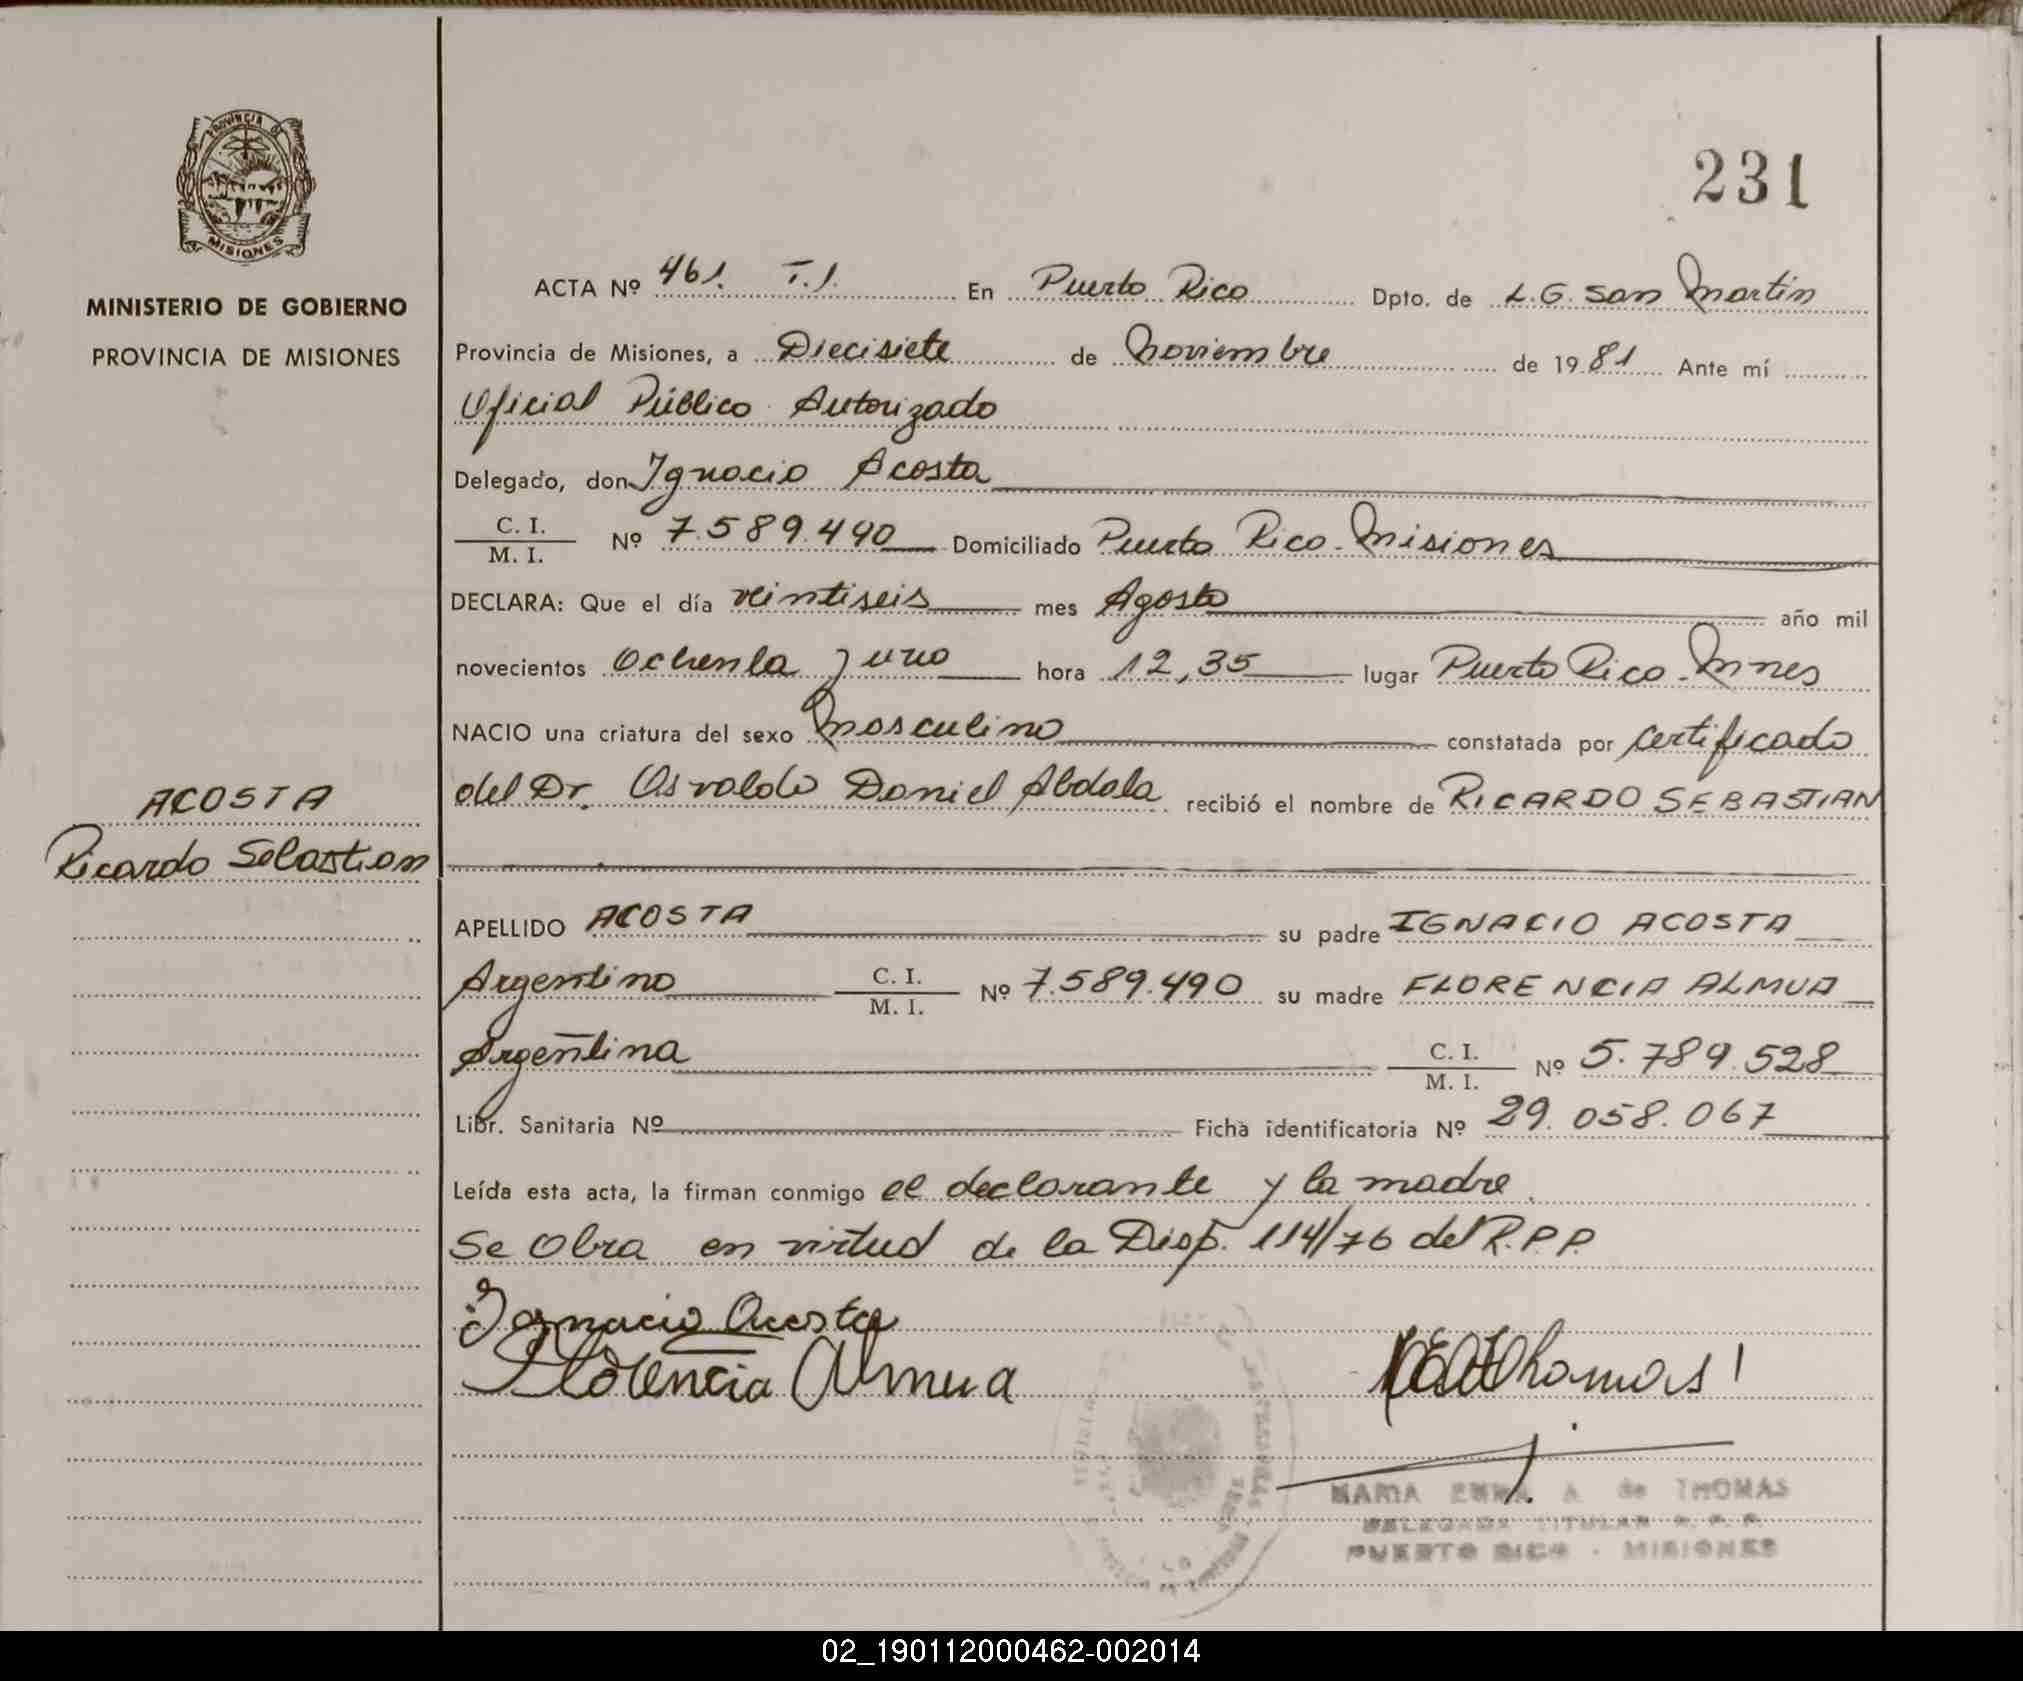 PROVINCIA DE
MISIONES
MINISTERIO DE GOBIERNO
PROVINCIA DE MISIONES
231
ACTA Nº 461. T.I. En Puerto Rico Dpto. de L.G. San Martin
Provincia de Misiones, a Diecisiete de Noviembre de 1981 Ante mí
Oficial Público Autorizado
Delegado, don Ignacio Acosta
C. I.
M. I. Nº 7.589.490 Domiciliado Puerto Rico - Misiones
DECLARA: Que el día veintiseis mes Agosto año mil
novecientos Ochenta y uno hora 12,35 lugar Puerto Rico - Mnes
NACIO una criatura del sexo Masculino constatada por certificado
del Dr. Osvaldo Daniel Abdala recibió el nombre de RICARDO SEBASTIAN
ACOSTA
Ricardo Sebastian
APELLIDO ACOSTA su padre IGNACIO ACOSTA
Argentino C. I.
M. I. Nº 7.589.490 su madre FLORENCIA ALMUA
Argentina C. I.
M. I. Nº 5.789.528
Libr. Sanitaria Nº Ficha identificatoria Nº 29.058.067
Leída esta acta, la firman conmigo el declarante y la madre.
Se Obra en virtud de la Disp. 114/76 del R.P.P.
Ignacio Acosta
Florencia Almua
Thomas
MARIA EMMA A de THOMAS
DELEGADA TITULAR R. P. P.
PUERTO RICO - MISIONES
02_190112000462-002014